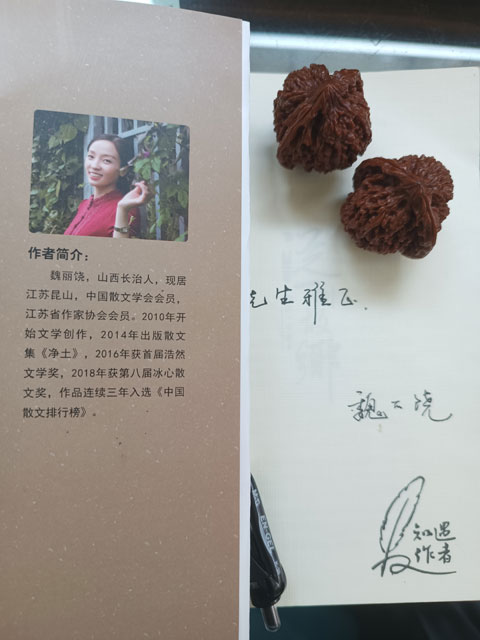 作者简介：
魏丽饶，山西长治人，现居
江苏昆山，中国散文学会会员，
江苏省作家协会会员。2010年开
始文学创作，2014年出版散文
集《净土》，2016年获首届浩然
文学奖，2018年获第八届冰心散
文奖，作品连续三年入选《中国
散文排行榜》。
先生雅正.
知遇
作者